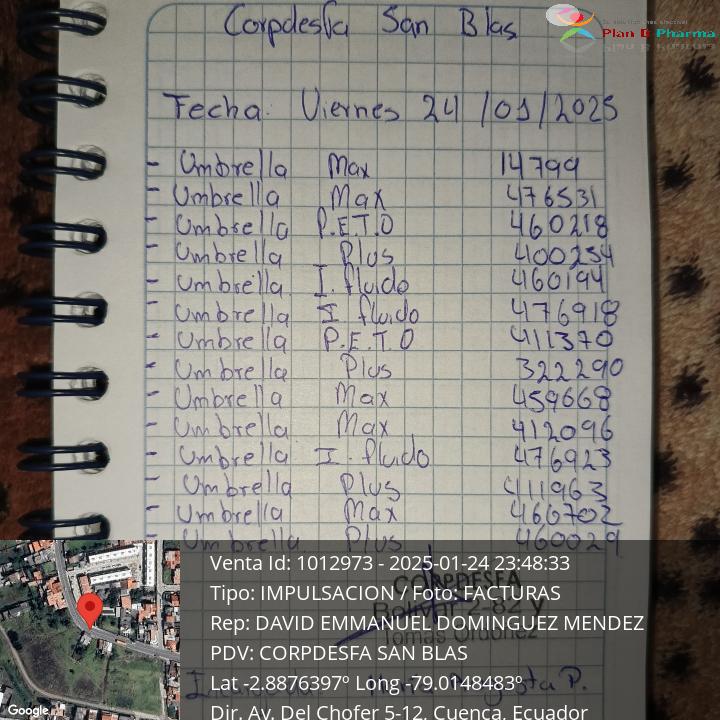 Corpdesfa San Blas
Plan D Pharma
Fecha: Viernes 24/01/2025
- Umbrella Max 14799
- Umbrella Max 476531
- Umbrella P.E.T.O 460218
- Umbrella Plus 400254
- Umbrella I. fluido 460194
- Umbrella I fluido 476918
- Umbrella P.E.T.O 411370
- Umbrella Plus 322290
- Umbrella Max 459668
- Umbrella Max 412096
- Umbrella I. fluido 476923
- Umbrella Plus 411963
- Umbrella Max 460702
- Umbrella Plus 460029
Venta Id: 1012973 - 2025-01-24 23:48:33
CORPDESFA
Tipo: IMPULSACION / Foto: FACTURAS
Bolivar 2-82 y
Rep: DAVID EMMANUEL DOMINGUEZ MENDEZ
Tomas Ordoñez
PDV: CORPDESFA SAN BLAS
Lat -2.8876397º Long -79.0148483º
P.
Dir. Av. Del Chofer 5-12, Cuenca, Ecuador
Google